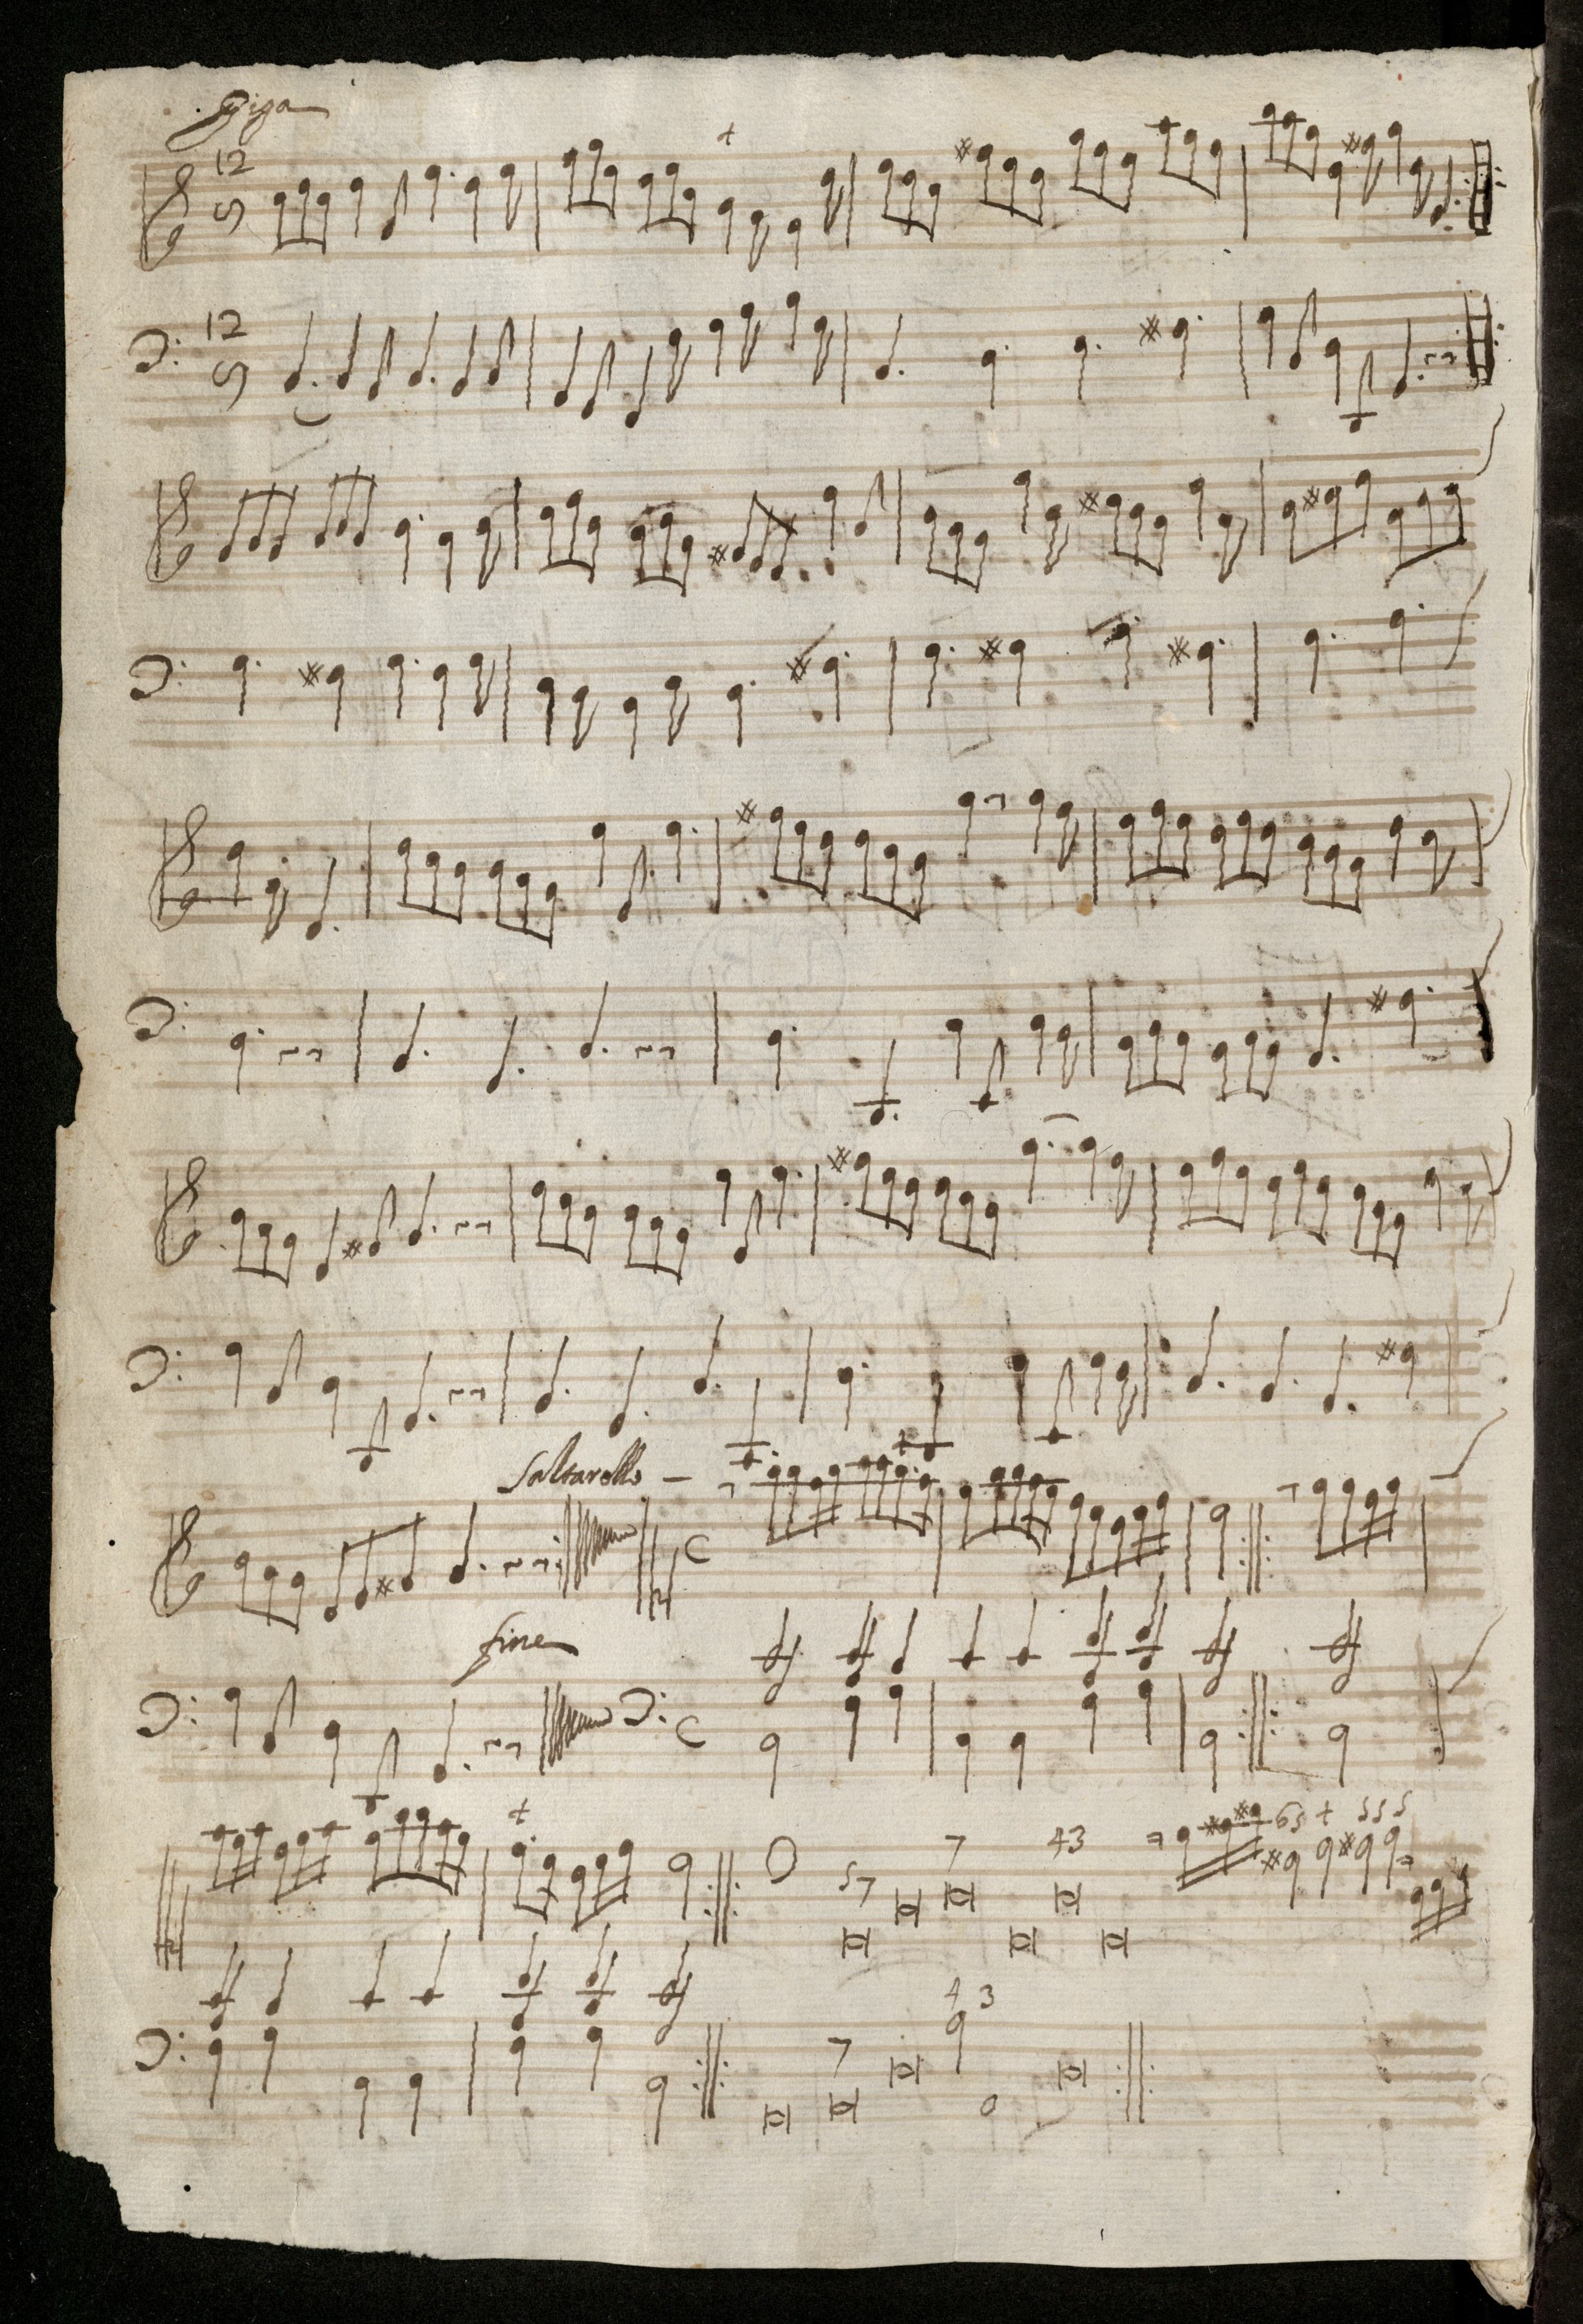 Giga
12
8
12
8
Saltarello
C
fine
C
57
7
43
65
555
7
43